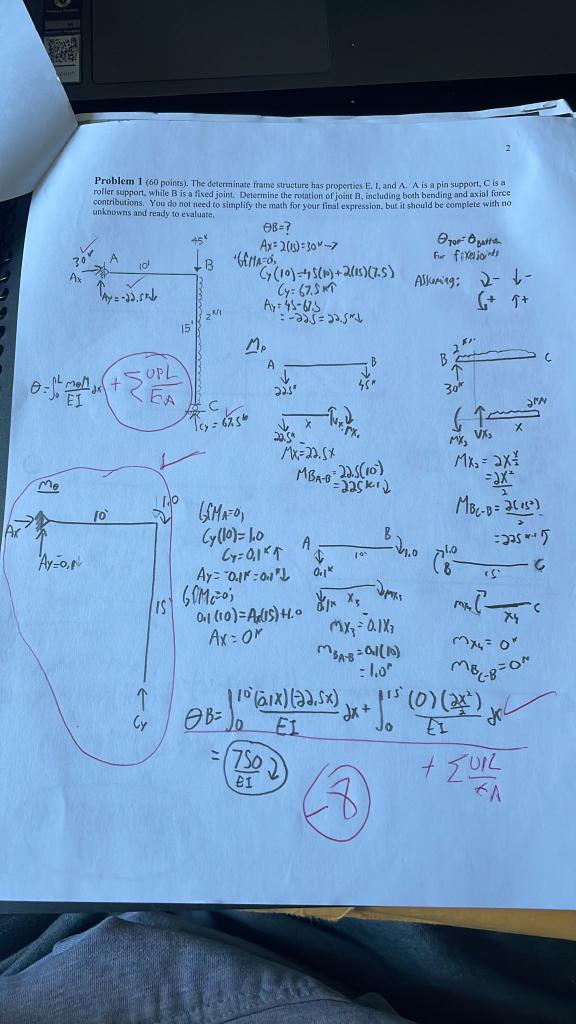 2
Problem 1 (60 points). The determinate frame structure has properties E, I, and A. A is a pin support, C is a
roller support, while B is a fixed joint. Determine the rotation of joint B, including both bending and axial force
contributions. You do not need to simplify the math for your final expression, but it should be complete with no
unknowns and ready to evaluate.
θB=?
Ax=2(15)=30ᵏ→
+↺ΣMA=0;
Cy(10)-45(10)+2(15)(7.5)
Cy=67.5ᵏ↑
Ay=45-67.5
=-22.5=22.5ᵏ↓
θTOP=θBottom
For fixed joints
Assuming:
2-
↓-
+
↑+
30ᵏ
Ax
A
10'
45ᵏ
B
Ay=-22.5ᵏ↓
15'
2ᵏ/¹
C
Cy=67.5ᵏ
θ=∫₀ᴸ mθM/EI dx
+ΣUPL/EA
Mp
A
B
22.5ᵏ
45ᵏ
22.5ᵏ
X
Mx₁=22.5X
MBA-B=22.5(10')
=225
B
C
30ᵏ
MX₂
VX₂
X
MX₂=2X X/2
=2X²/2
MBC-B=2(15²)/2
=225
mθ
1.0
Ax
10'
Ay=0.1
15'
Cy
ΣMA=0;
Cy(10)=1.0
Cy=0.1ᵏ↑
Ay=-0.1ᵏ=0.1ᵏ↓
ΣMC=0;
0.1(10)=Ax(15)+1.0
Ax=0ᵏ
A
B
1.0
10'
0.1ᵏ
0.1ᵏ
X₃
mx₃
mx₃=0.1X₃
mBA-B=0.1(10)
=1.0ᵏ
1.0
B
C
15'
mx₄
C
X₄
mx₄=0ᵏ
mBC-B=0ᵏ
θB=∫₀¹⁰' (0.1X)(-22.5X)/EI dx+∫₀¹⁵' (0)(2X²/2)/EI dx
=750/EI
-8
+ΣUPL/EA